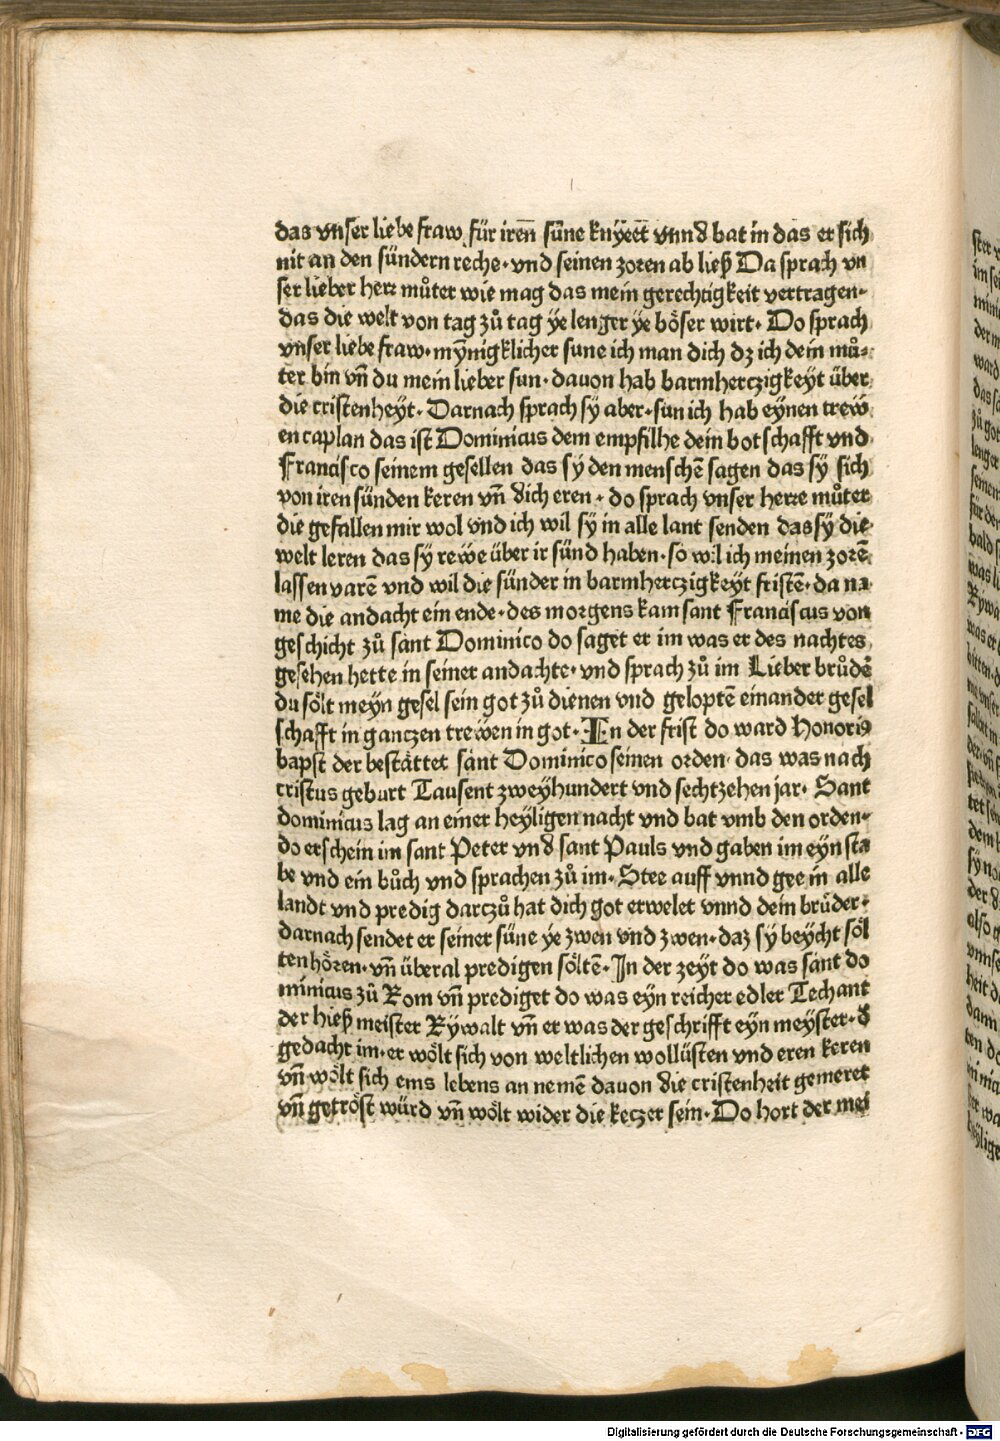 das vnser liebe fraw für irēn süne knyeet vnnd bat in das er sich
nit an den sündern reche· vnd seinen zoren ab ließ Da sprach vn
ser lieber herr můter wie mag das mein gerechtigkeit vertragen·
das die welt von tag zů tag ye lenger ye böser wirt· Do sprach
vnser liebe fraw· mynigklicher sune ich man dich dz ich dein mů⸗
ter bin vn̄ du mein lieber sun· dauon hab barmherczigkeyt über
die cristenheyt· Darnach sprach sy aber· sun ich hab eynen trew
en caplan das ist Dominicus dem empfilhe dein botschafft vnd
Francisco seinem gesellen das sy den menschē sagen das sy sich
von iren sünden keren vn̄ dich eren· do sprach vnser herre můter
die gefallen mir wol vnd ich wil sy in alle lant senden das sy die
welt leren das sy rewe über ir sünd haben· so wil ich meinen zorē
lassen varē vnd wil die sünder in barmherczigkeyt fristē· da na
me die andacht ein ende· des morgens kam sant Franciscus von
geschicht zů sant Dominico do saget er im was er des nachtes
gesehen hette in seiner andachte· vnd sprach zů im Lieber brůdē
du sölt meyn gesel sein got zů dienen vnd geloptē einander gesel
schafft in ganczen trewen in got· In der frist do ward Honoriꝰ
bapst der bestättet sant Dominico seinen orden· das was nach
cristus geburt Tausent zweyhundert vnd sechtzehen jar· Sant
dominicus lag an einer heyligen nacht vnd bat vmb den orden·
do erschein im sant Peter vnd sant Pauls vnd gaben im eyn sta
be vnd ein bůch vnd sprachen zů im· Stee auff vnnd gee in alle
landt vnd predig darczů hat dich got erwelet vnnd dein brüder·
darnach sendet er seiner süne ye zwen vnd zwen· daz sy beycht söl
ten hören· vn̄ überal predigen söltē· In der zeyt do was sant do
minicus zů Rom vn̄ prediget do was eyn reicher edler Techant
der hieß meister Rywalt vn̄ er was der geschrifft eyn meyster· d
gedacht im· er wölt sich von weltlichen wollüsten vnd eren keren
vn̄ wölt sich eins lebens an nemē dauon die cristenheit gemeret
vn̄ getröst würd vn̄ wölt wider die keczer sein· Do hort der mei
Digitalisierung gefördert durch die Deutsche Forschungsgemeinschaft - DFG